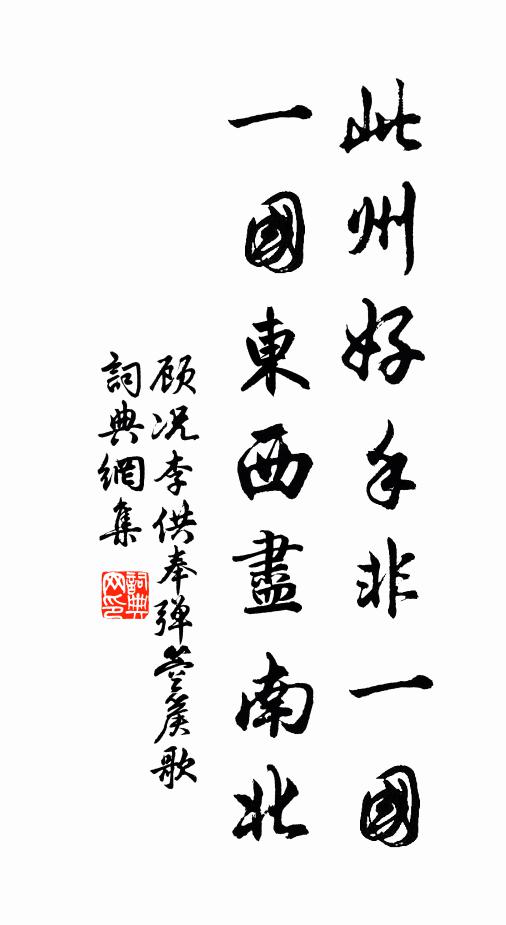 此州好手非一國
一國東西盡南北
顾况李供奉弹箜篌歌
詞典網集
詞典网印